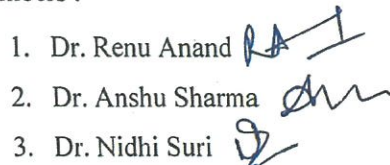 1. Dr. Renu Anand
2. Dr. Anshu Sharma
3. Dr. Nidhi Suri